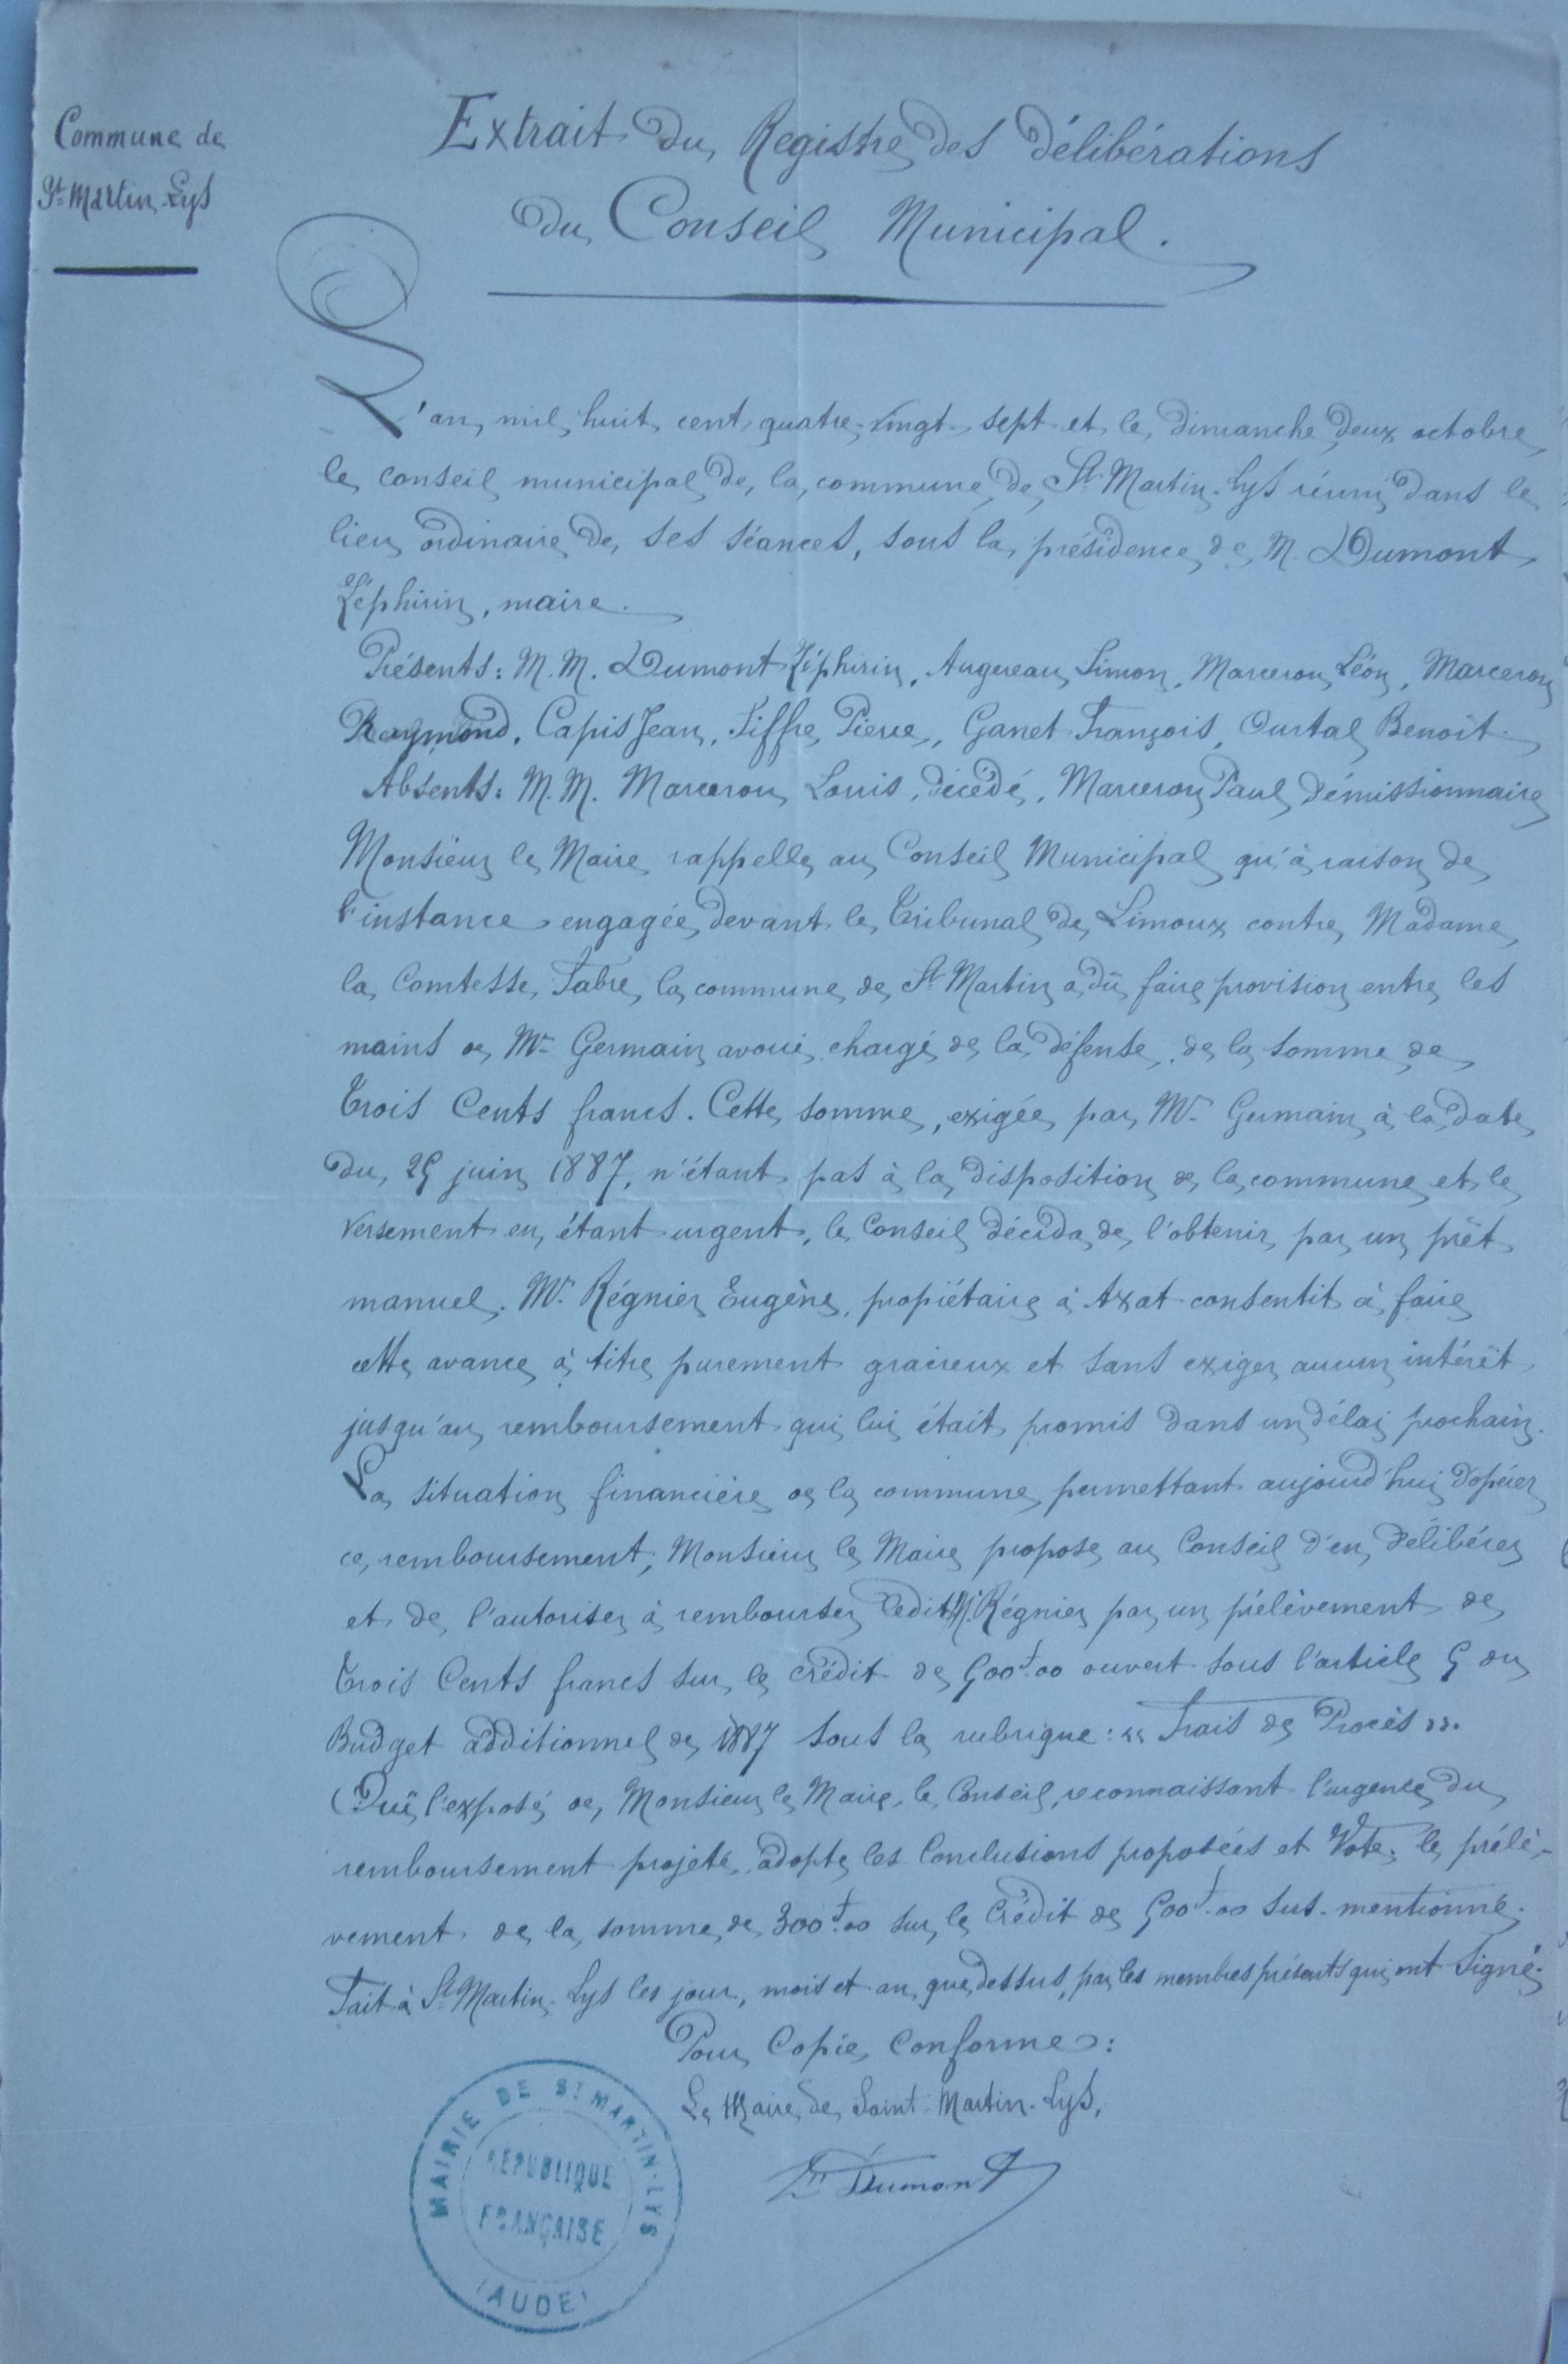 Commune de
St Martin-Lys
Extrait du Registre des délibérations
du Conseil Municipal.
L'an mil huit cent quatre-vingt-sept et le dimanche deux octobre
le conseil municipal de la commune de St Martin-Lys réuni dans le
lieu ordinaire de ses séances, sous la présidence de M. Dumont
Zéphirin, maire.
Présents: M.M. Dumont Zéphirin, Augereau Simon, Marceron Léon, Marceron
Raymond, Capis Jean, Siffre Pierre, Ganet François, Ourtal Benoît.
Absents: M.M. Marceron Louis, décédé, Marceron Paul démissionnaire
Monsieur le Maire rappelle au Conseil Municipal qu'à raison de
l'instance engagée devant le Tribunal de Limoux contre Madame
la Comtesse Fabre, la commune de St Martin a dû faire provision entre les
mains de Me Germain avoué, chargé de la défense, de la somme de
Trois Cents francs. Cette somme, exigée par Me Germain à la date
du 25 juin 1887, n'étant pas à la disposition de la commune et le
versement en étant urgent, le Conseil décida de l'obtenir par un prêt
manuel. Mr Régnier Eugène, propiétaire à Axat consentit à faire
cette avance à titre purement gracieux et sans exiger aucun intérêt
jusqu'au remboursement qui lui était promis dans un délai prochain.
La situation financière de la commune permettant aujourd'hui d'opérer
ce remboursement, Monsieur le Maire propose au Conseil d'en délibérer
et de l'autoriser à rembourser ledit M. Régnier par un prélèvement de
Trois Cents francs sur le crédit de 500f.00 ouvert sous l'article 5 du
Budget additionnel de 1887 sous la rubrique: « Frais de Procès ».
Ouï l'exposé de Monsieur le Maire, le Conseil, reconnaissant l'urgence du
remboursement projeté, adopte les Conclusions proposées et Vote le prélè-
vement de la somme de 300f.00 sur le Crédit de 500f.00 sus-mentionné.
Fait à St Martin-Lys les jour, mois et an que dessus, par les membres présents qui ont signé.
Pour Copie Conforme:
Le Maire de Saint-Martin-Lys,
Zin Dumont
MAIRIE DE ST MARTIN-LYS
RÉPUBLIQUE
FRANÇAISE
(AUDE)